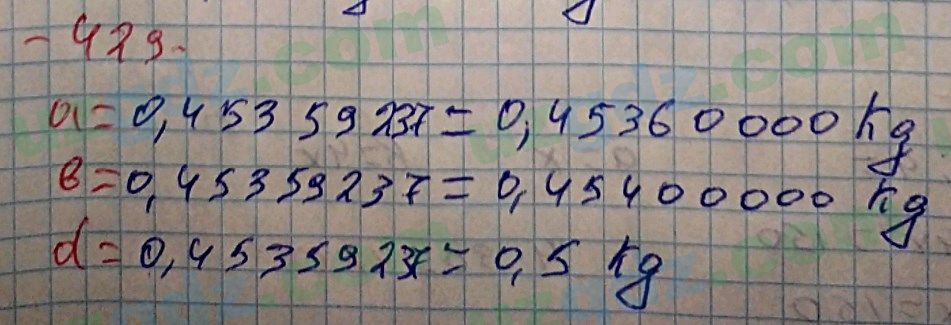 - 429.
a = 0,45359237 = 0,45360000 kg
в = 0,45359237 = 0,45400000 kg
d = 0,45359237 = 0,5 kg